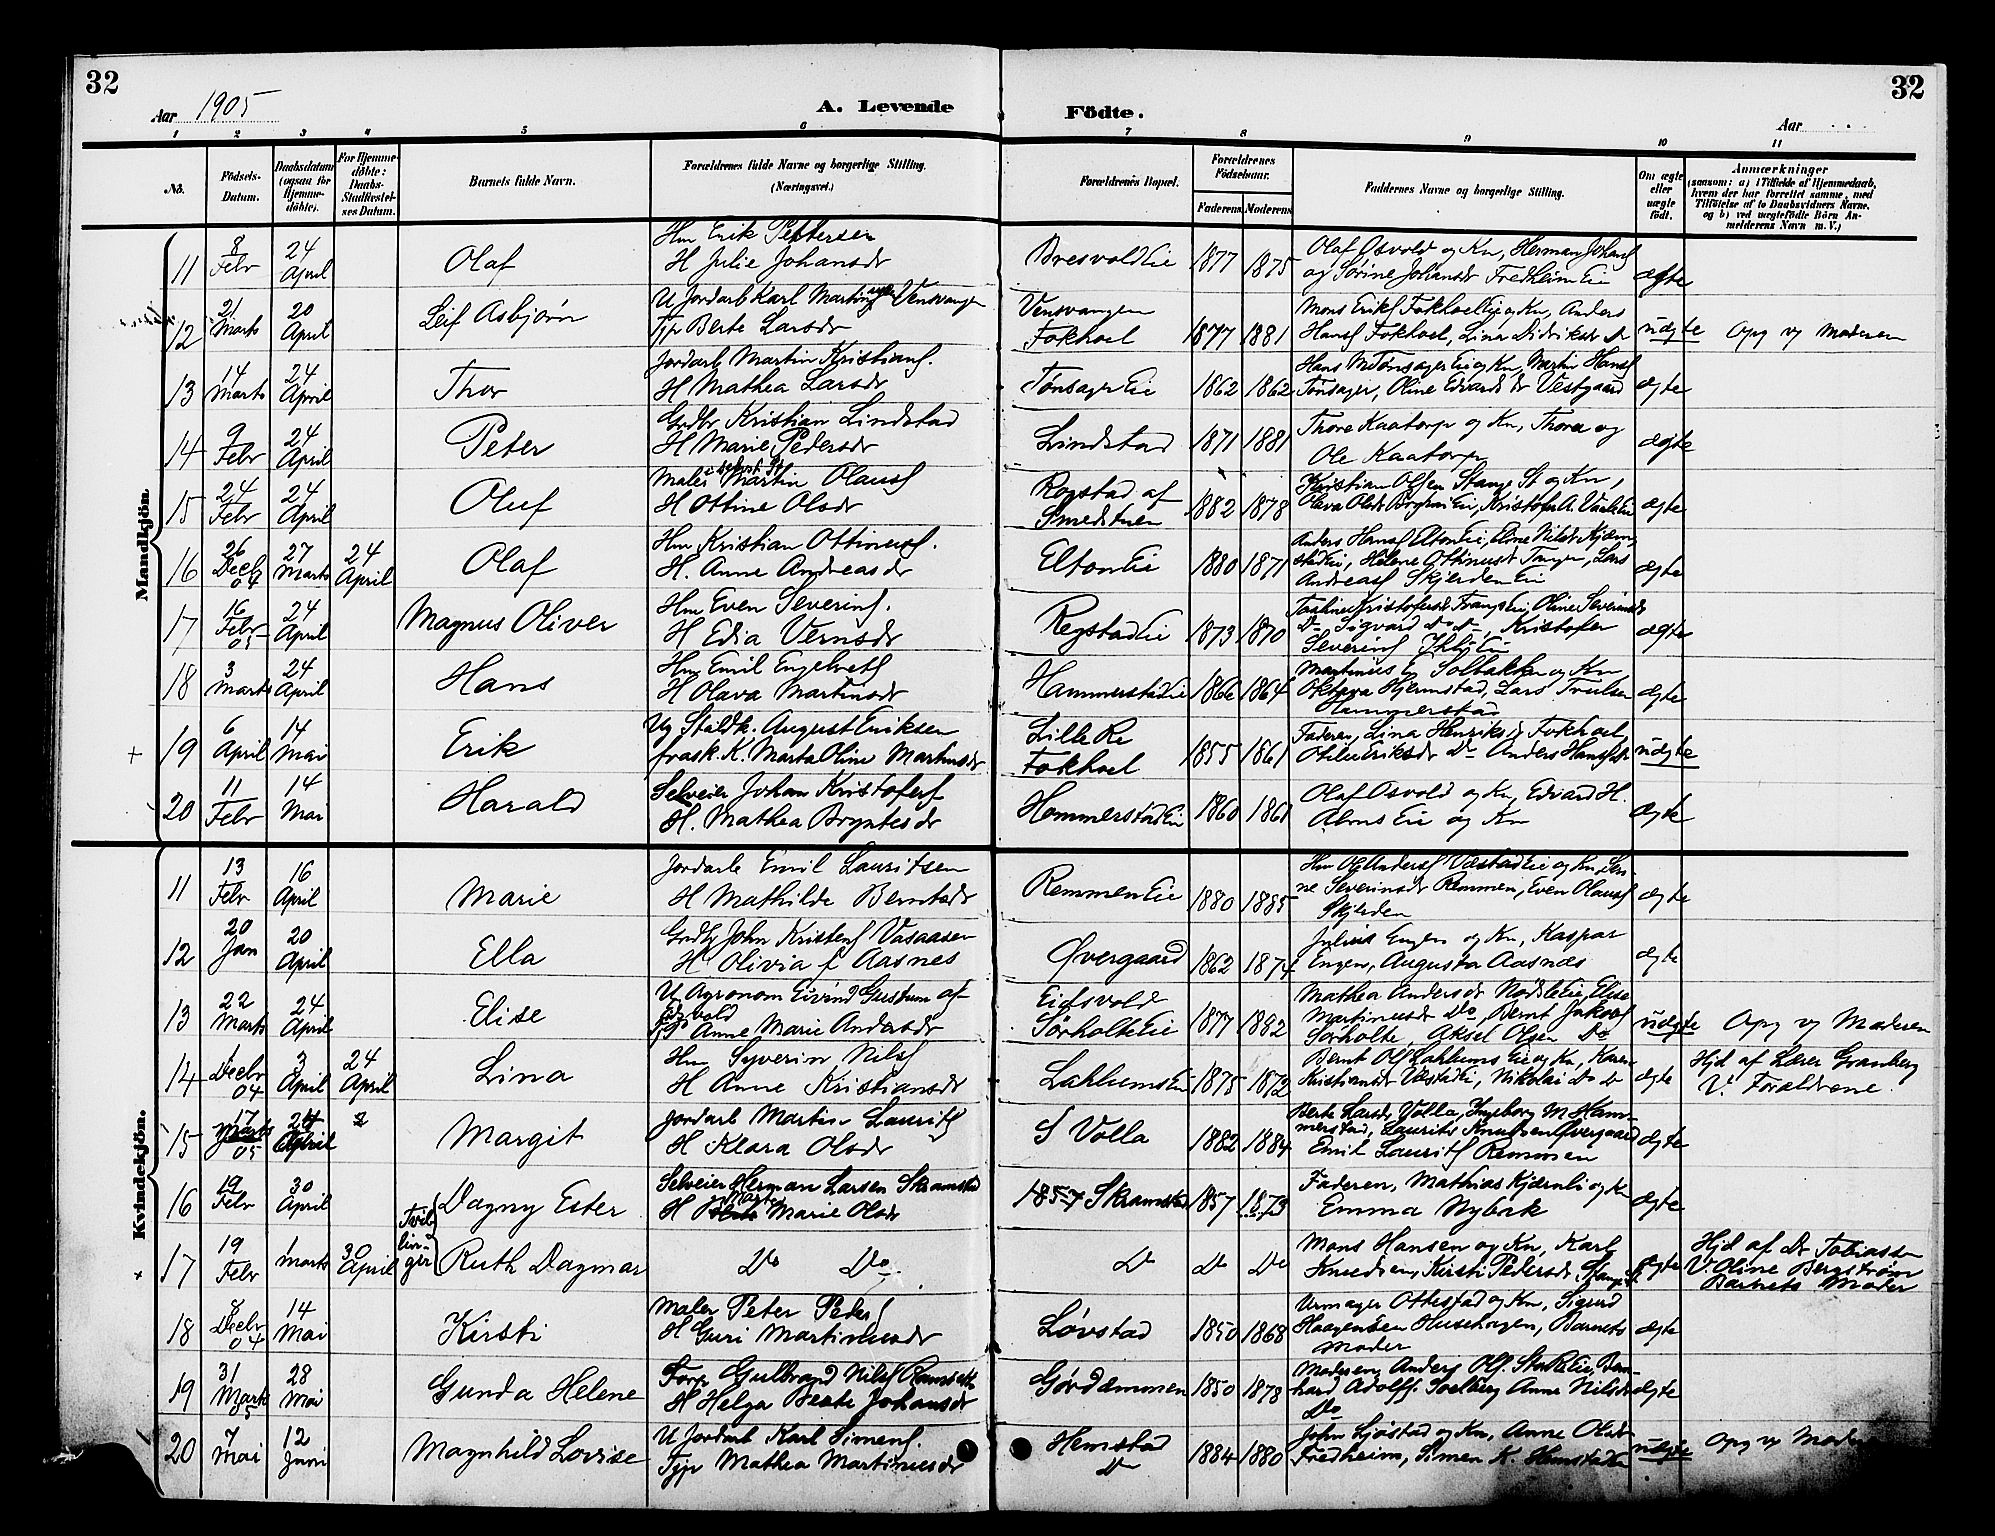 32
32
Aar 1905
A. Levende
Födte.
Aar
1 2 3 4 5 6 7 8 9 10 11
No. Födsels-Datum. Daabsdatum (ogsaa for Hjemme-döbte). For Hjemme-döbte: Daabs-Stadfæstel-ses Datum. Barnets fulde Navn. Forældrenes fulde Navne og borgerlige Stilling. (Næringsvei.) Forældrenes Bopæl. Forældrenes Födselsaar. Faderens Moderens Faddernes Navne og borgerlige Stilling. Om ægte eller uægte födt. Anmærkninger (saasom: a) i Tilfælde af Hjemmedaab, hvem der har forrettet samme, med Tilföielse af to Daabsvidners Navne, og b) ved uægtefödte Börn An-melderens Navn m. V.)
Mandkjön
11 8 Febr 24 April Olaf Hm Erik Pettersen
H Julie Johansdr Bresvold Eie 1877 1875 Olaf Osvold og Kn, Herman Johans
og Sørine Johansdr Fredheim Eie ægte
12 21 Marts 20 April Leif Asbjørn U Jordarb Karl Martins Vensvangen
Tjp Berte Larsdr Vensvangen
Fokhoel 1877 1881 Mons Eriks Fokhoel Eie og Kn, Anders
Hans Fokhoel, Lina Didriksdr uægte Opg v Moderen
13 14 Marts 24 April Thor Jordarb Martin Kristians.
H Mathea Larsdr Tønsager Eie 1862 1862 Hans M Tønsager Eie og Kn, Martin Hans
Tønsager, Oline Edvardsdr Vestgaard ægte
14 9 Febr 24 April Peter Grdbr Kristian Lindstad
H Marie Pedersdr Lindstad 1871 1881 Thore Kaatorp og Kn, Thora og
Ole Kaatorp ægte
15 24 Febr 24 April Oluf Maler Martin Olaus
H Ottine Olsdr Rogstad af
Smedstuen 1882 1878 Kristian Olsen Stange St og Kn,
ægte
16 26 Decb 04 27 Marts 24 April Olaf Hm Kristian Ottinius.
H. Anne Andreasdr Elton Eie 1880 1871 Anders Hans Elton Eie,
Helene Ottinusdr Tangen, Lars
Andreas Skjerden Eie ægte
17 16 Febr 05 24 April Magnus Oliver Hm Even Severins.
H Edia Vernsdr Rogstad Eie 1873 1870
Sigvard Do Kristofer
Severins ægte
18 3 Marts 24 April Hans Hm Emil Engebrets
H Olava Martinsdr Hammerstad Eie 1866 1864 Martinius E Solbakken og Kn
Oktava Hjermstad, Lars Trulsen
Hammerstad ægte
19 6 April 14 Mai Erik Ug Staldk. August Eriksen
frask. K. Marta Oline Martinsdr Lille Re
Fokhoel 1855 1861 Faderen, Lina Henriksd Fokhoel,
Otilie Eriksdr Do Anders Hans uægte
20 11 Febr 14 Mai Harald Selveier Johan Kristofers
H. Mathea Bryntesdr Hommerstad Eie 1860 1861 Olaf Osvold og Kn, Edvard H.
Alms Eie og Kn ægte
Kvindekjön.
11 13 Febr 16 April Marie Jordarb Emil Lauritsen
H Mathilde Berntsdr Remmen Eie 1880 1885 Hm Ole Anders Væstad Eie og Kn, Seri
ne Severinsdr Remmen, Even Olaus
Skjerden ægte
12 20 Jan 20 April Ella Grdbr John Kristens Vasaasen
H Olivia f Aasnes Øvergaard 1862 1874 Julius Engen og Kn, Kaspar
Engen, Augusta Aasnæs ægte
13 22 Marts 24 April Elise U Agronom Eivind Gustum af
Eidsvold
Anne Marie Andersdr Eidsvold
Sørholte Eie 1877 1882 Mathea Andersdr Nødsle Eie, Elise
Martinusdr Do, Bernt Jakobs
Sørholte, Aksel Olsen Do uægte Opg v Moderen
14 1 Decbr 04 3 April 24 April Lina Hm Syverin Nils
H Anne Kristiansdr Lahlums Eie 1875 1872 Bernt Ols Lahlums Eie og Kn, Karen
Kristiansdr Væstad Eie, Nikolai Do ægte Hjd af Lærer Granberg
V. Forældrene
15 17 Marts 05 24 April Margit Jordarb Martin Laurits
H Klara Olsdr S Volla 1882 1884 Berte Larsdr Volla, Ingeborg M Ham-
merstad, Laurits Knutsen Øvergaard
Emil Laurits Remmen ægte
16 19 Febr 30 April Tvil-lin-ger Dagny Ester Selveier Herman Larsen Skramstad
H Marte Marie Olsdr 1857 Skramstad 1857 1873 Faderen, Mathias Kjærnli og Kn
Emma Nybak ægte
17 19 Febr 1 Marts 30 April Ruth Dagmar Do Do Do Do Do Mons Hansen og Kn, Karl
Knudsen, Kirsti Pedersdr, Stange St. ægte Hjd af Dr Tobiassen
V. Oline Bergstrøm
Barnets Moder
18 8 Decbr 04 14 Mai Kirsti Maler Peter Peders
H Guri Martinusdr Løvstad 1850 1868 Urmager Ottestad og Kn, Sigurd
Haagensen Husehagen, Barnets
Moder ægte
19 31 Marts 5 28 Mai Gunda Helene Forp Gulbrand Nils Ramseth
H Helga Beate Johansdr Gørdammen 1850 1878 Moderen, Anders Ols.
Adolf Solberg Anne Nilsdr
Do ægte
20 7 Mai 12 Juni Magnhild Lovise U Jordarb Karl Simens.
Tjp Mathea Martinusdr Hemstad
Do 1884 1880 John Sjøstad og Kn, Anne Olsdr
Fredheim, Simen K. Hemstad uægte Opg v Moderen